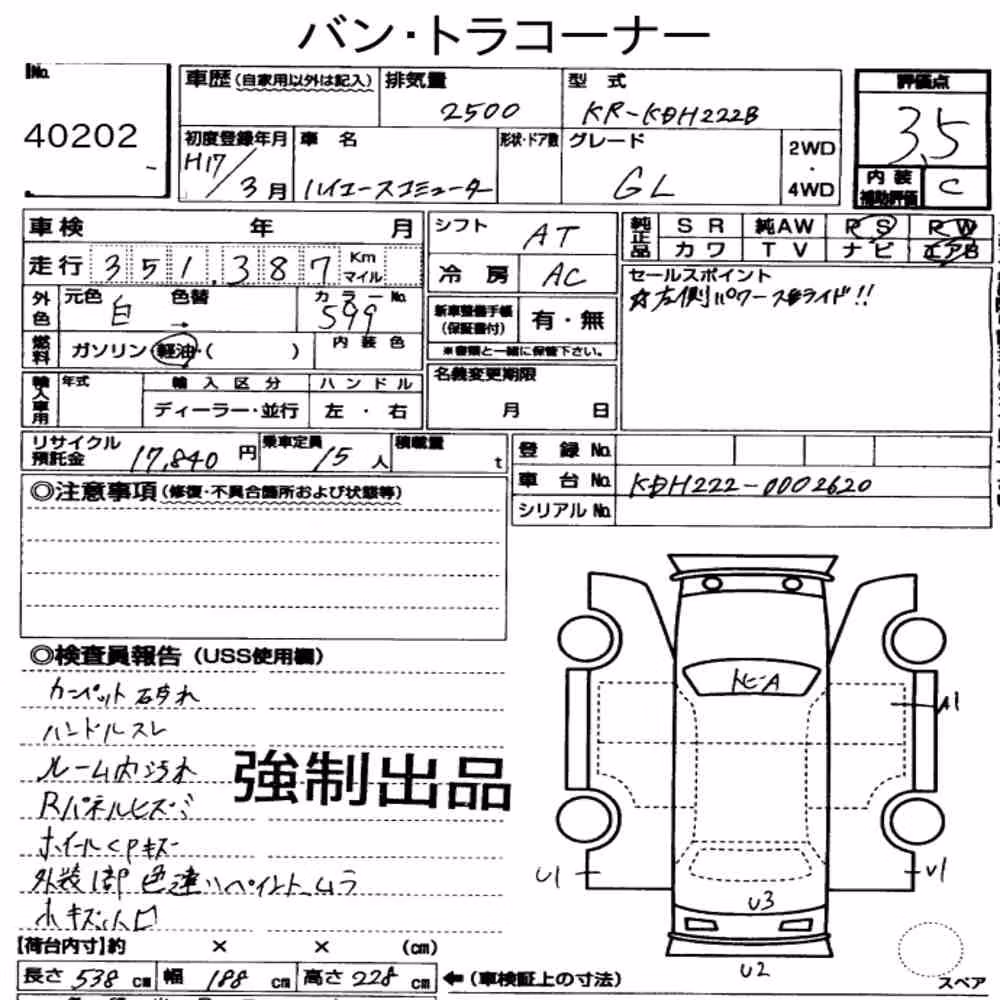 バン・トラコーナー
No.
40202
車歴(自家用以外は記入)
排気量
2500
型式
KR-KDH222B
評価点
3.5
初度登録年月
H17/3月
車名
ハイエースコミューター
形状・ドア数
グレード
GL
2WD
・
4WD
内装
補助評価
C
車検 年 月
走行 351,387 Km
マイル
シフト
AT
冷房
AC
純正品
SR 純AW PS PW
カワ TV ナビ エアB
外色
元色 白 色替 →
カラーNo.
599
燃料
ガソリン・軽油・( )
内装色
新車整備手帳
(保証書付)
有・無
※書類と一緒に保管下さい。
セールスポイント
☆左側パワースライド!!
輸入車用
年式
輸入区分
ハンドル
ディーラー・並行
左・右
名義変更期限
月 日
リサイクル
預託金
17,840円
乗車定員
15人
積載量
t
登録No.
車台No.
KDH222-0002620
シリアルNo.
◎注意事項(修復・不具合箇所および状態等)
◎検査員報告(USS使用欄)
カーペット破れ
ハンドルスレ
ルーム内汚れ
Rパネルヒズミ
ホイールCPキズ
外装1部色違いペイントムラ
小キズ凹
強制出品
トビA
A1
U1
U1
U3
U2
スペア
【荷台内寸】約 × × (cm)
長さ 538 cm 幅 188 cm 高さ 228 cm
←(車検証上の寸法)